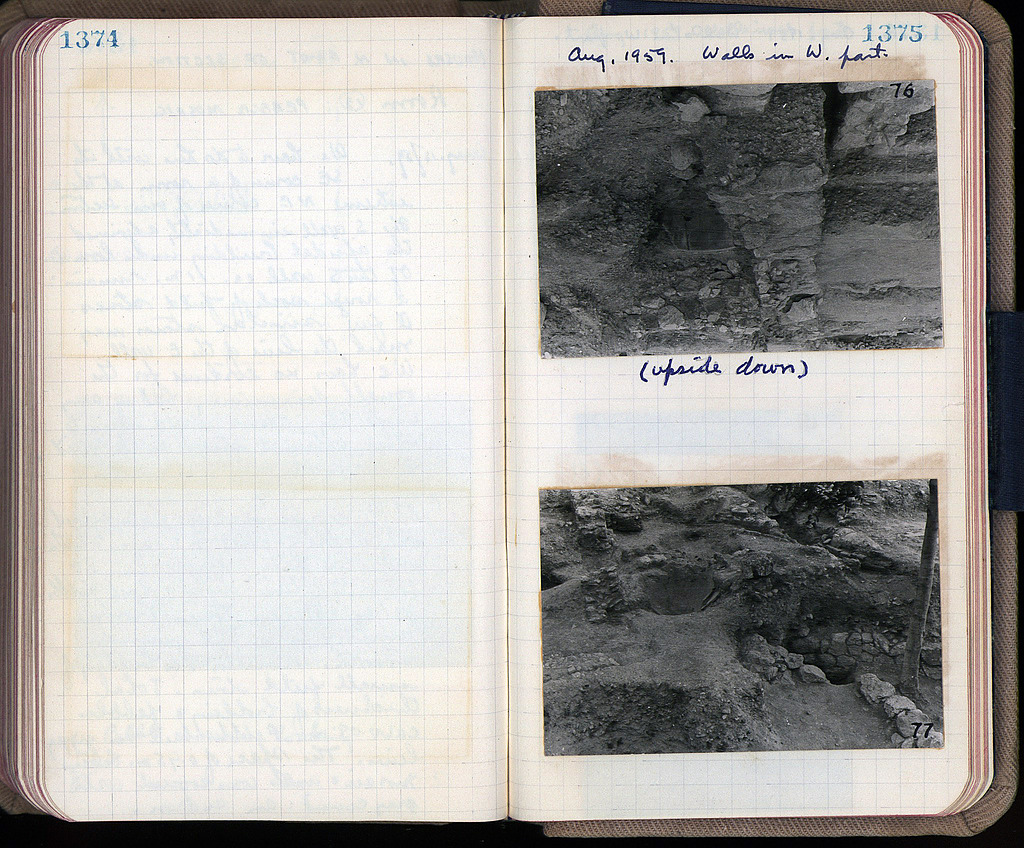 1374
1375
Aug. 1959. Walls in W. part.
76
(upside down)
77